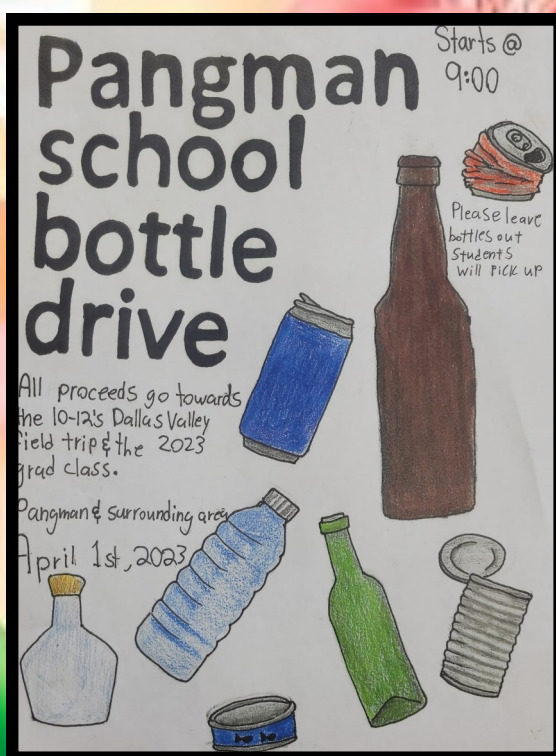 Pangman
school
bottle
drive
Starts @
9:00
Please leave
bottles out
students
will pick up
All proceeds go towards
the 10-12's Dallas Valley
field trip & the 2023
grad class.
Pangman & surrounding area
April 1st, 2023